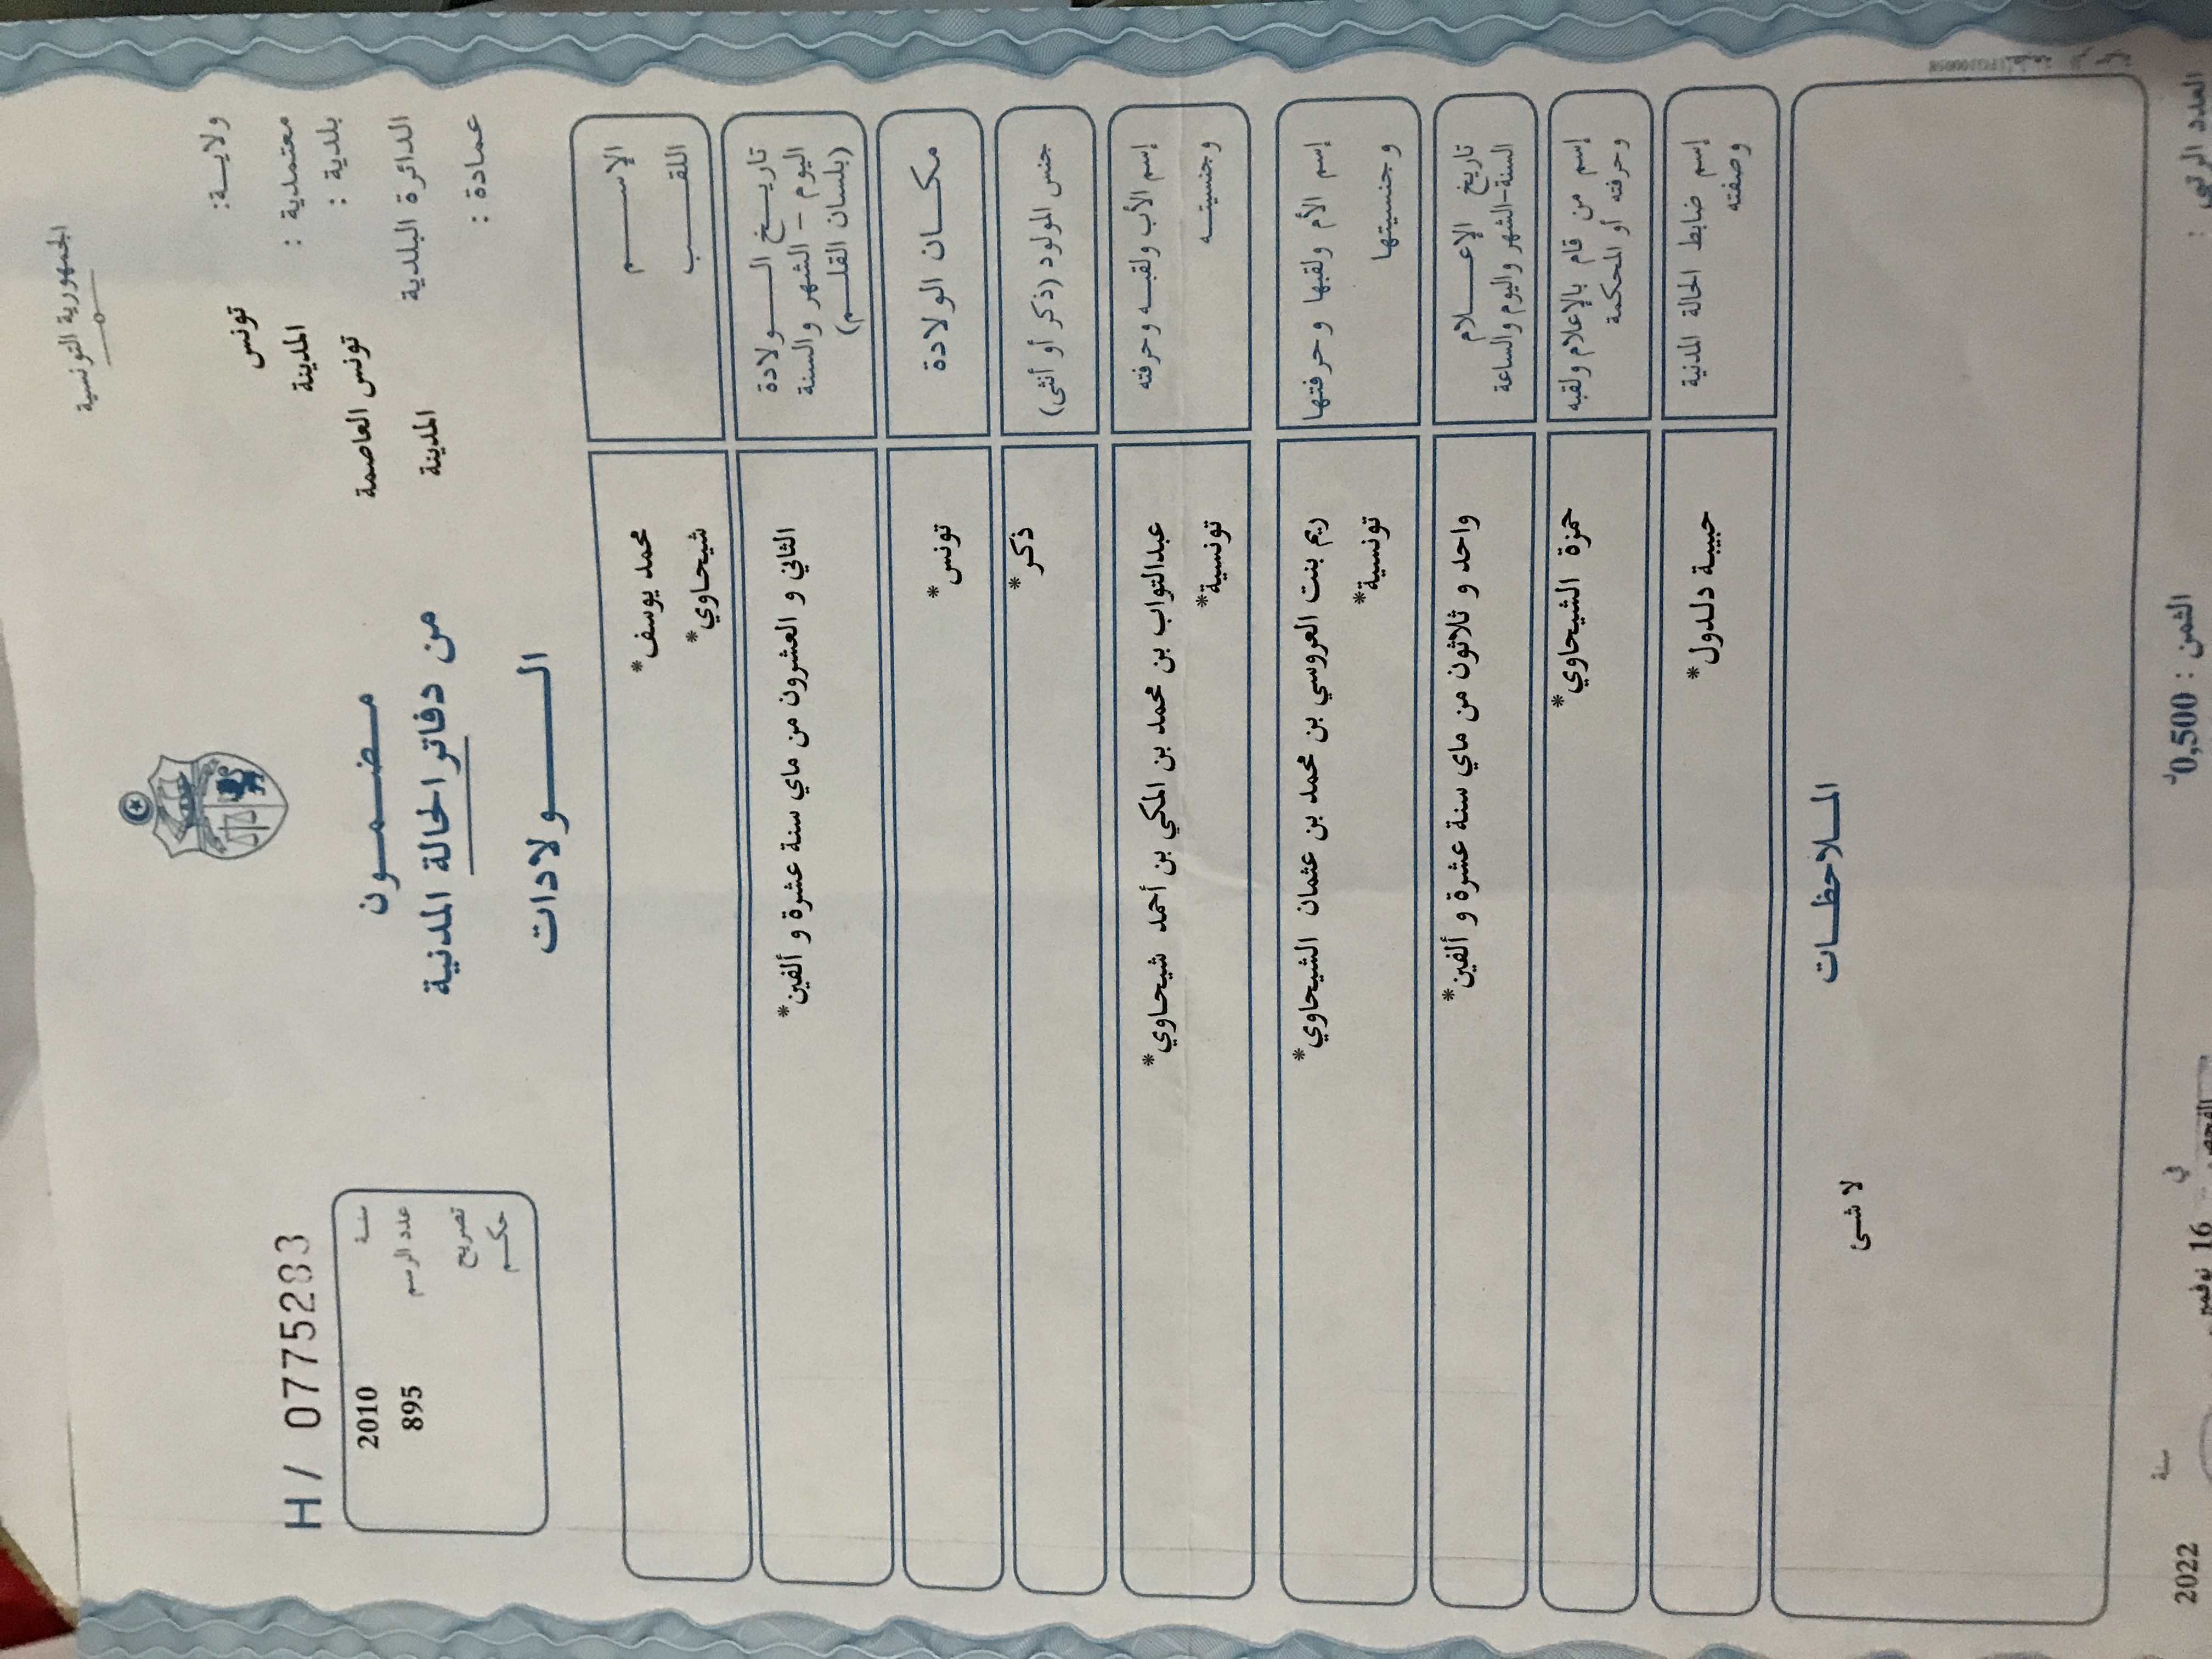 الجمهورية التونسية
ولاية: تونس
معتمدية : المدينة
بلدية : تونس العاصمة
الدائرة البلدية المدينة
عمادة :
مضمون
من دفاتر الحالة المدنية
الولادات
H/ 0775283
سنة 2010
عدد الرسم 895
تصريح
حكم
الإسم محمد يوسف*
اللقب شيحاوي*
تاريخ الولادة
اليوم – الشهر والسنة
(بلسان القلم)
الثاني و العشرون من ماي سنة عشرة و ألفين*
مكان الولادة تونس*
جنس المولود (ذكر أو أنثى) ذكر*
إسم الأب ولقبه وحرفته عبدالتواب بن محمد بن المكي بن أحمد شيحاوي*
وجنسيته تونسية*
إسم الأم ولقبها وحرفتها ريم بنت العروسي بن محمد بن عثمان الشيحاوي*
وجنسيتها تونسية*
تاريخ الإعلام
السنة-الشهر واليوم والساعة
واحد و ثلاثون من ماي سنة عشرة و ألفين*
إسم من قام بالإعلام ولقبه
وحرفته أو المحكمة
حمزة الشيحاوي*
إسم ضابط الحالة المدنية
وصفته
حبيبة دلدول*
الملاحظات
لا شئ
الثمن : 0,500د
في 16 نوفمبر
سنة 2022